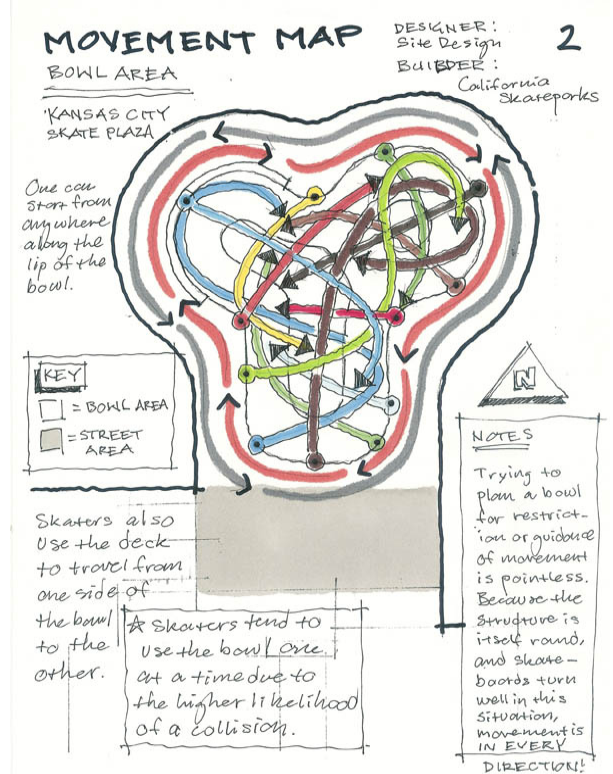 MOVEMENT MAP
BOWL AREA
KANSAS CITY
SKATE PLAZA
DESIGNER:
Site Design
BUILDER:
California
Skateparks
2
One can
start from
anywhere
along the
lip of the
bowl.
KEY
= BOWL AREA
= STREET
AREA
N
NOTES
Trying to
plan a bowl
for restrict-
ion or guidance
of movement
is pointless.
Because the
structure is
itself round,
and skate-
boards turn
well in this
situation,
movement is
IN EVERY
DIRECTION!
Skaters also
use the deck
to travel from
one side of
the bowl
to the
other.
☆ Skaters tend to
use the bowl one
at a time due to
the higher likelihood
of a collision.